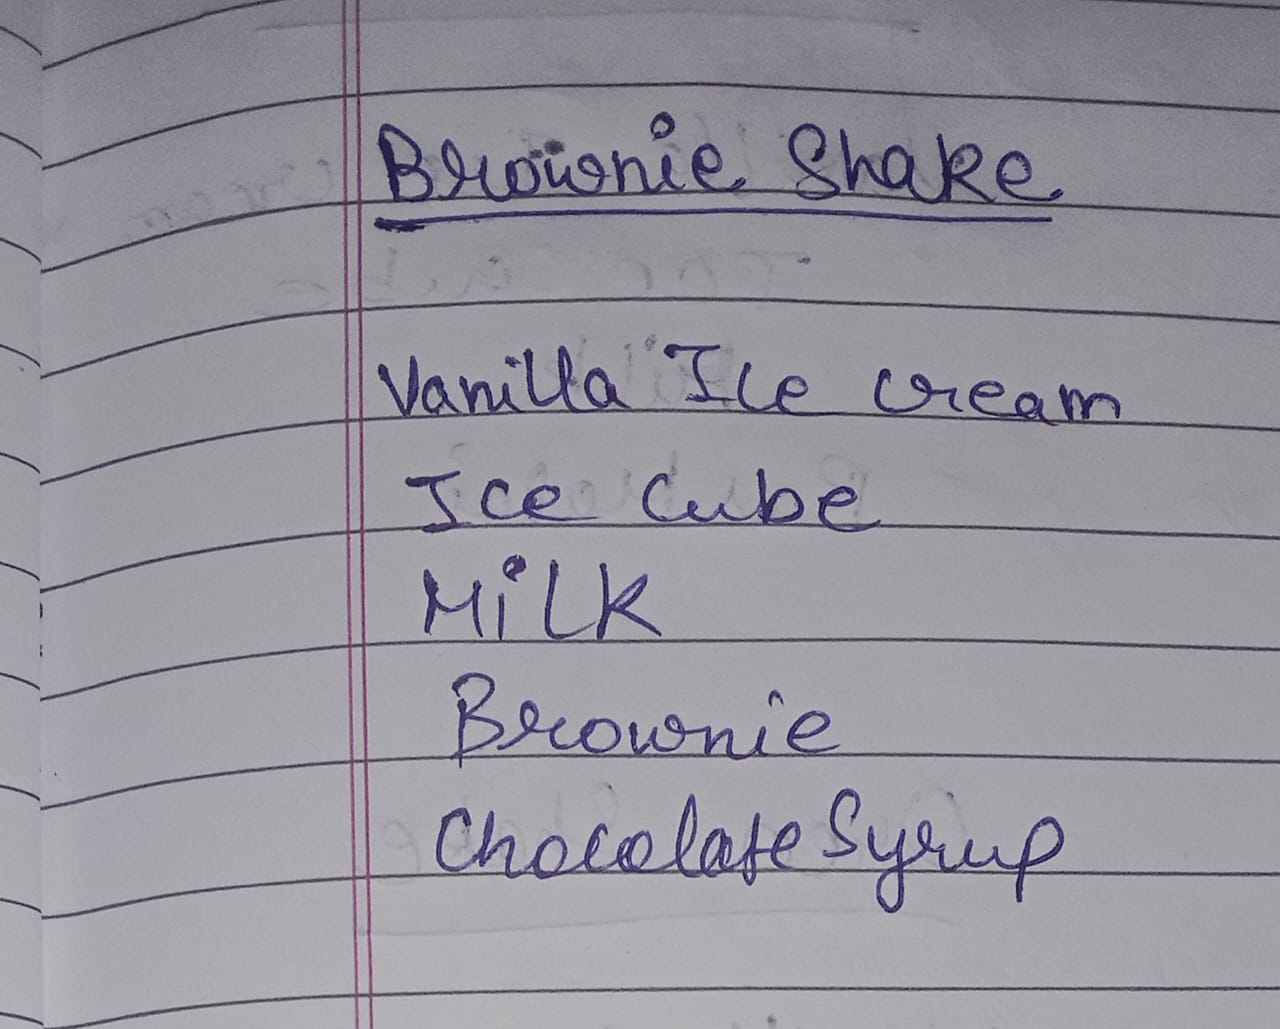 Brownie Shake
Vanilla Ice cream
Ice Cube
MiLK
Brownie
Chocolate Syrup